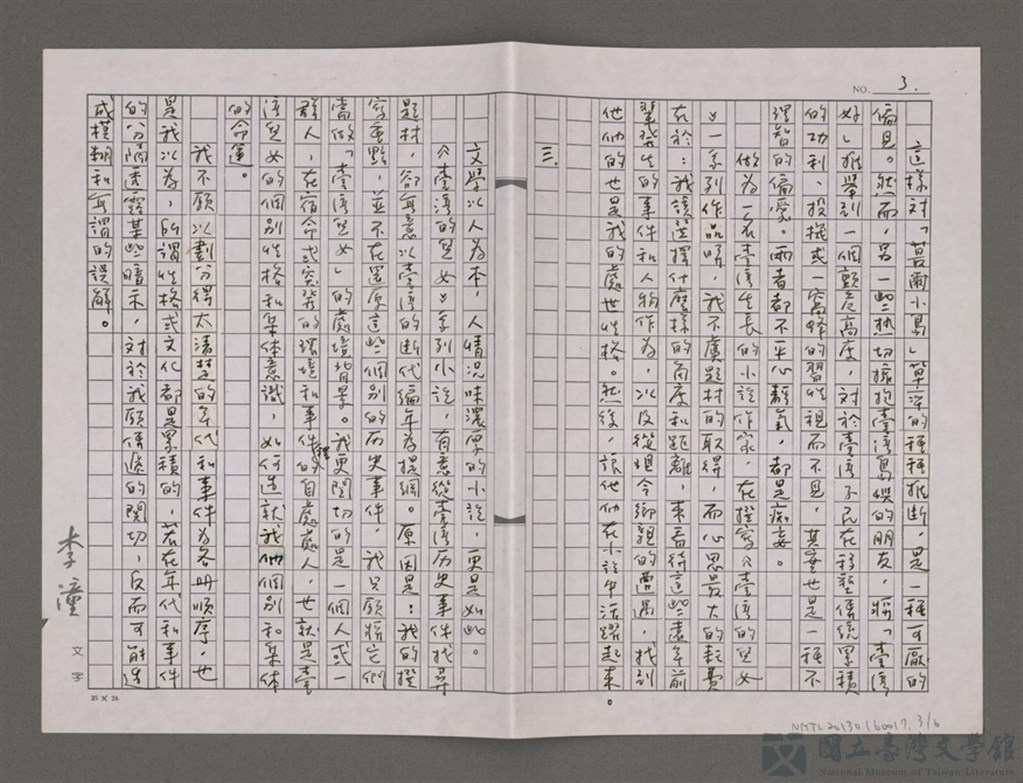 NO. 3.
這樣対「蕞爾小島」草率的種種推断，是一種可厭的
偏見。然而，另一些热切擁抱臺湾島嶼的朋友，將「臺湾
好」推舉到一個顛危高度，対於臺湾子民在移墾傳統累積
的功利、投機或一窩蜂的習性視而不見，其实也是一種不
理智的偏愛。兩者都不平心靜氣，都是痴妄。
做为一名臺湾生長的小說作家，在撰寫《臺湾的兒女
》一系列作品時，我不虞題材的取得，而心思最大的耗費
在於：我該選擇什麼樣的角度和距離，來看待這些遠年前
輩發生的事件和人物作为，以及從現今鄉親的遭遇，找到
他們的也是我的處世性格。然後，讓他們在小說中活躍起來。
三.
文學以人为本，人情況味濃厚的小說，更是如此。
《臺湾的兒女》系列小說，有意從臺湾历史事件找尋
題材，卻無意以臺湾的断代編年为提綱。原因是：我的撰
寫重點，並不在還原這些個別的历史事件，我只願將它們
當做「臺湾兒女」的處境背景。我更関切的是一個人或一
群人，在宿命或突發的環境和事件裡的自處處人，也就是臺
湾兒女的個別性格和集体意識，如何造就我們個別和集体
的命運。
我不願以劃分得太清楚的年代和事件为各冊順序，也
是我以为，所謂性格或文化都是累積的，若在年代和事件
的分隔透露某些暗示，対於我願傳遞的関切，反而可能造
成模糊和無謂的誤解。
李潼
文字
25 X 24
NMTL20130160017, 3/6
國立臺灣文學館
National Museum of Taiwan Literature